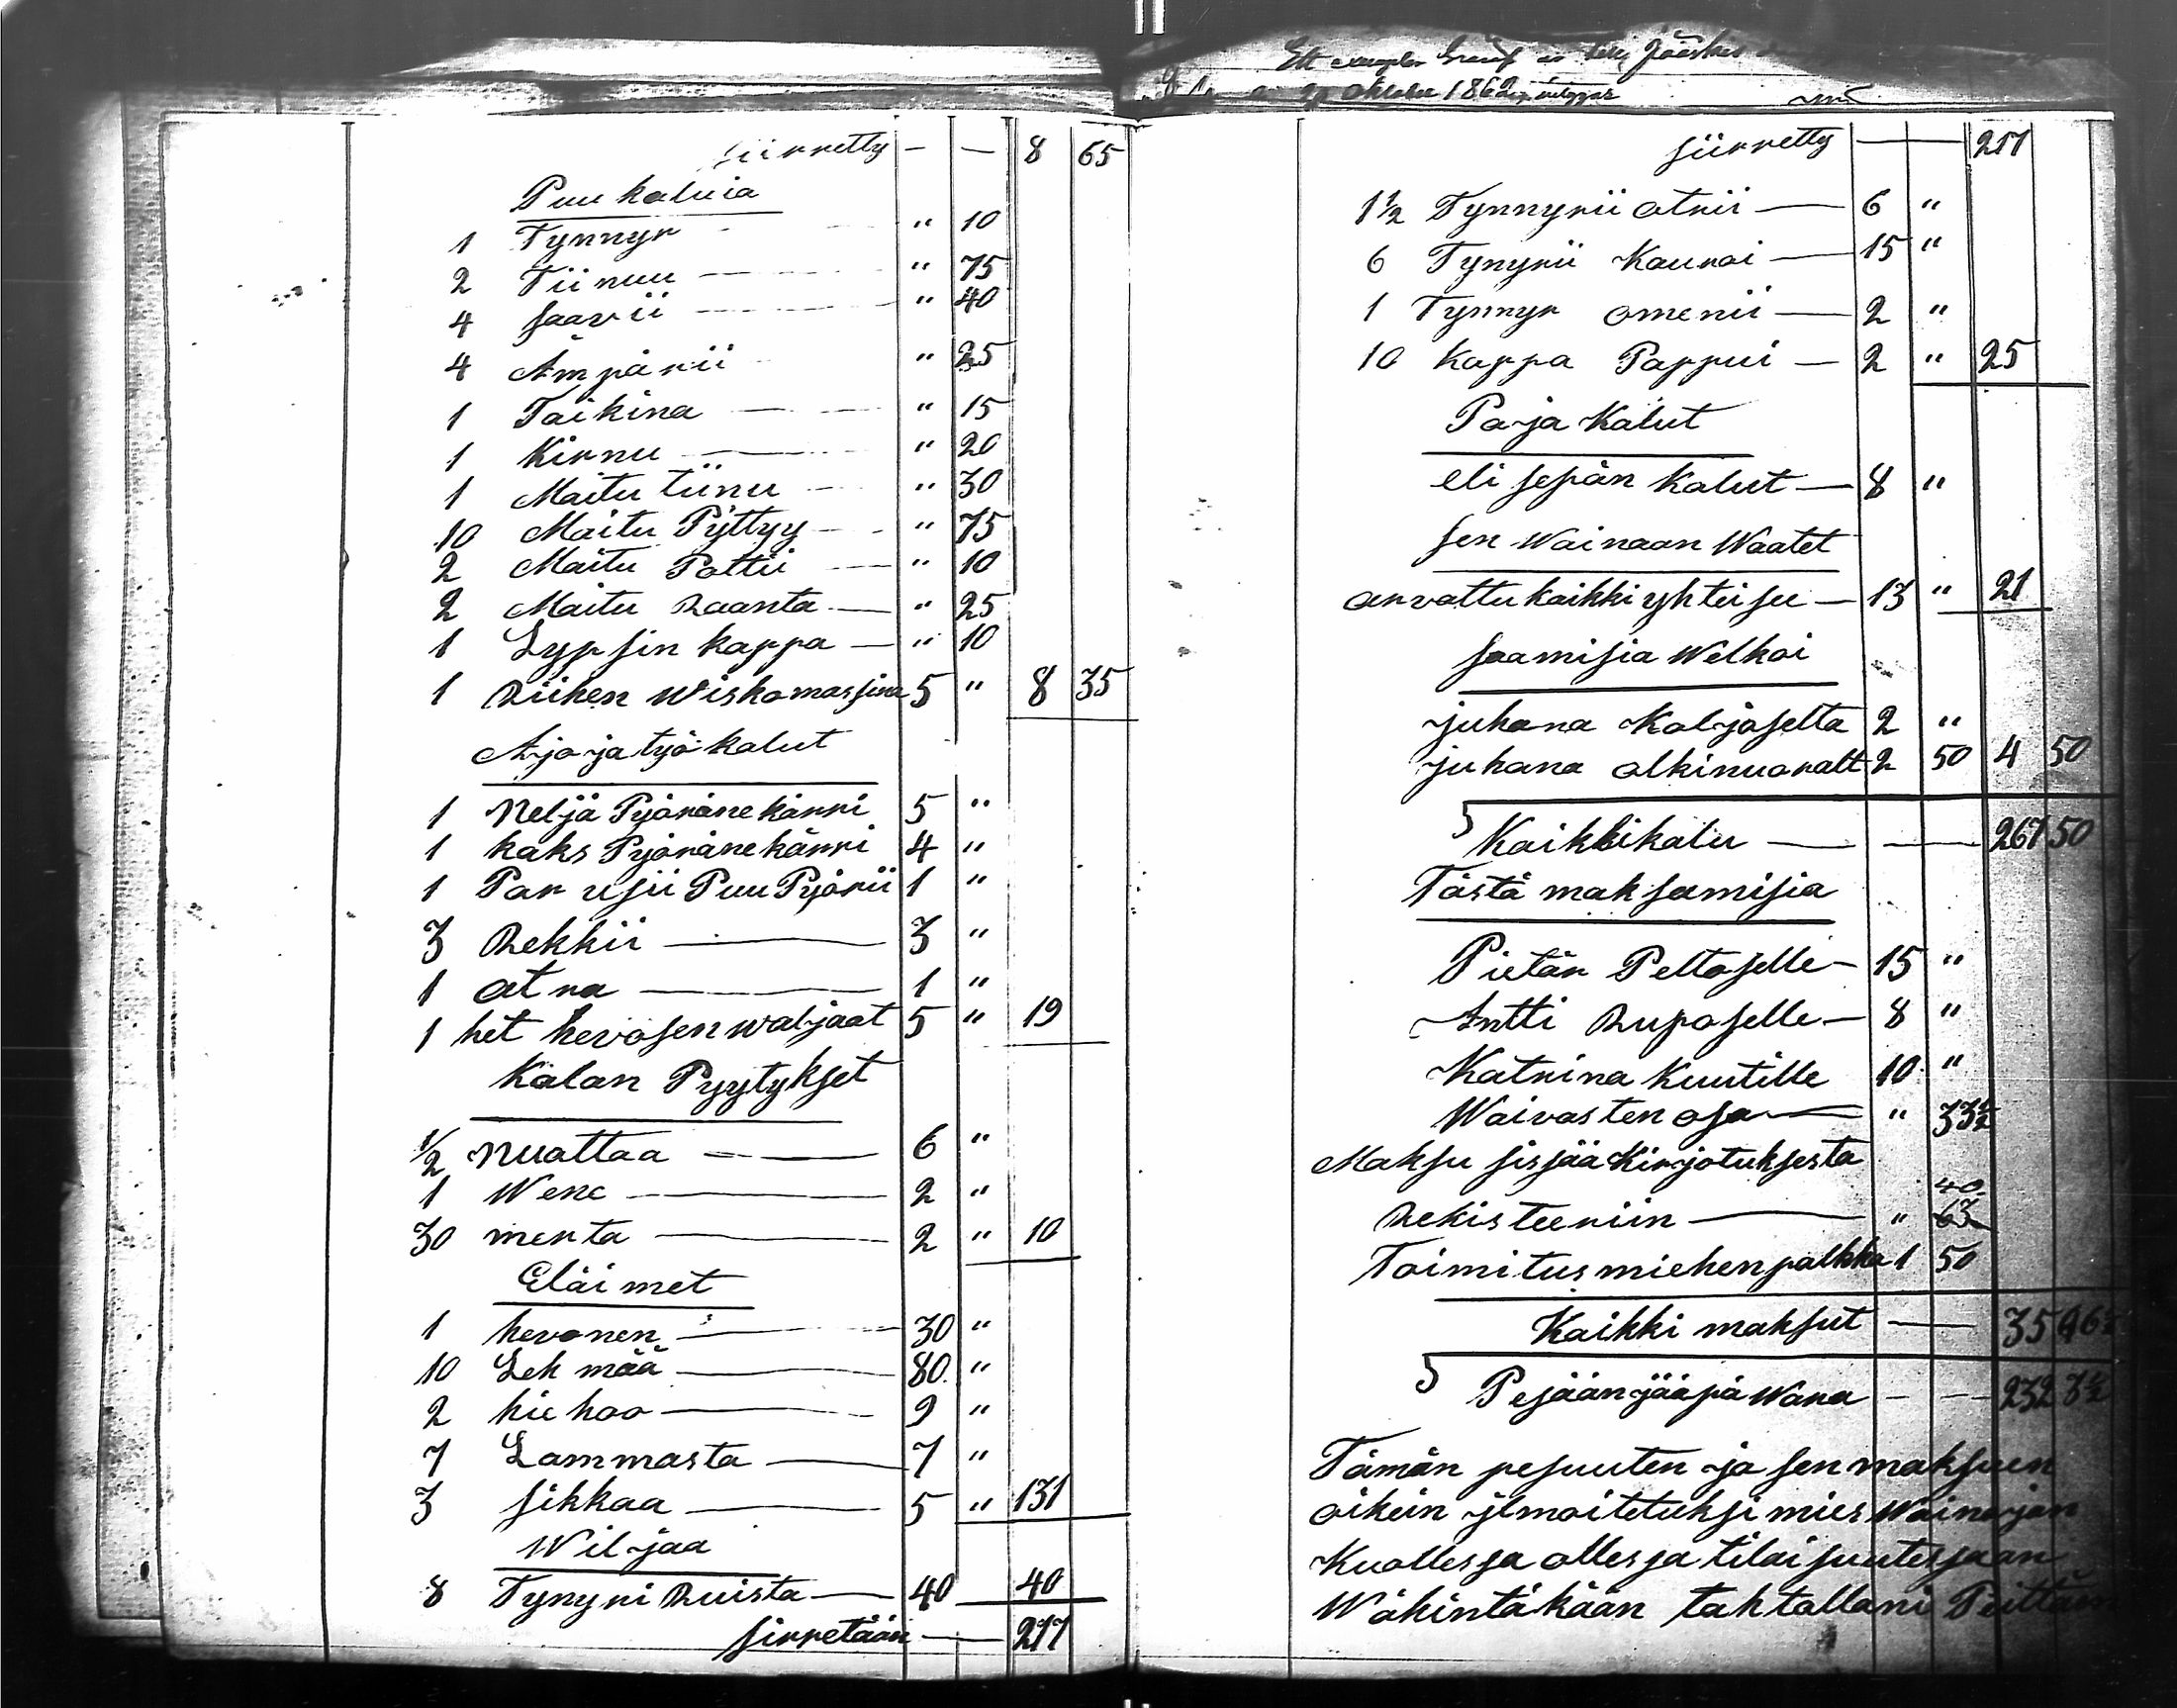 siirretty - - 8 65
Puu kaluia
1 Tynnyr " 10
2 Tiinuu " 75
4 saavii " 40
4 Ämpärii " 25
1 Taikina " 15
1 Kirnu " 20
1 Maitu tiinu " 30
10 Maitu Pyttyy " 75
2 Maitu Pottii " 10
2 Maitu Raanta " 25
1 Lypsin kappa " 10
1 Riihen wiskomassina 5 " 8 35
Ajo ja työ kalut
1 Neljä Pyöräne kärri 5 "
1 kaks Pyöräne kärri 4 "
1 Par usii Puu Pyörii 1 "
3 Rekkii 3 "
1 atra 1 "
1 het hevosen waljaat 5 " 19
Kalan Pyytykset
1/2 nuattaa 6 "
1 Wene 2 "
30 merta 2 " 10
Eläimet
1 hevonen 30 "
10 Lehmää 80 "
2 hiehoo 9 "
7 Lammasta 7 "
3 sikkaa 5 " 131
Wiljaa
8 Tynyri Ruista 40 40
siirretään 217
Oktober 1862
siirretty 217
1 1/2 Tynnyrii otrii 6 "
6 Tynyrii Kauroi 15 "
1 Tynnyr omenii 2 "
10 Kappa Pappui 2 " 25
Paja Kalut
eli sepän Kalut 8 "
sen Wainaan Waatet
arvattu kaikki yhteisee 13 " 21
saamisia Welkoi
juhana Koljoselta 2 "
juhana alkinuoralt 2 50 4 50
S Kaikki kalu 267 50
Tästä maksamisia
Pietär Peltoselle 15 "
Antti Ruposelle 8 "
Katrina Kuutille 10 "
Waivasten osa " 33 1/2
Maksu sissää Kirjotuksesta
40
Rekisteeriin " 63
Toimitusmiehen palkka 1 50
Kaikki maksut 35 96 1/2
S Pesään jääpä Wara 232 3 1/2
Tämän pesuuten ja sen maksuen
oikein ilmoitetuksi mies Waina jan
Kuollessa ollessa tilaisuutessaan
Wähintäkään tahtallani Peittäm